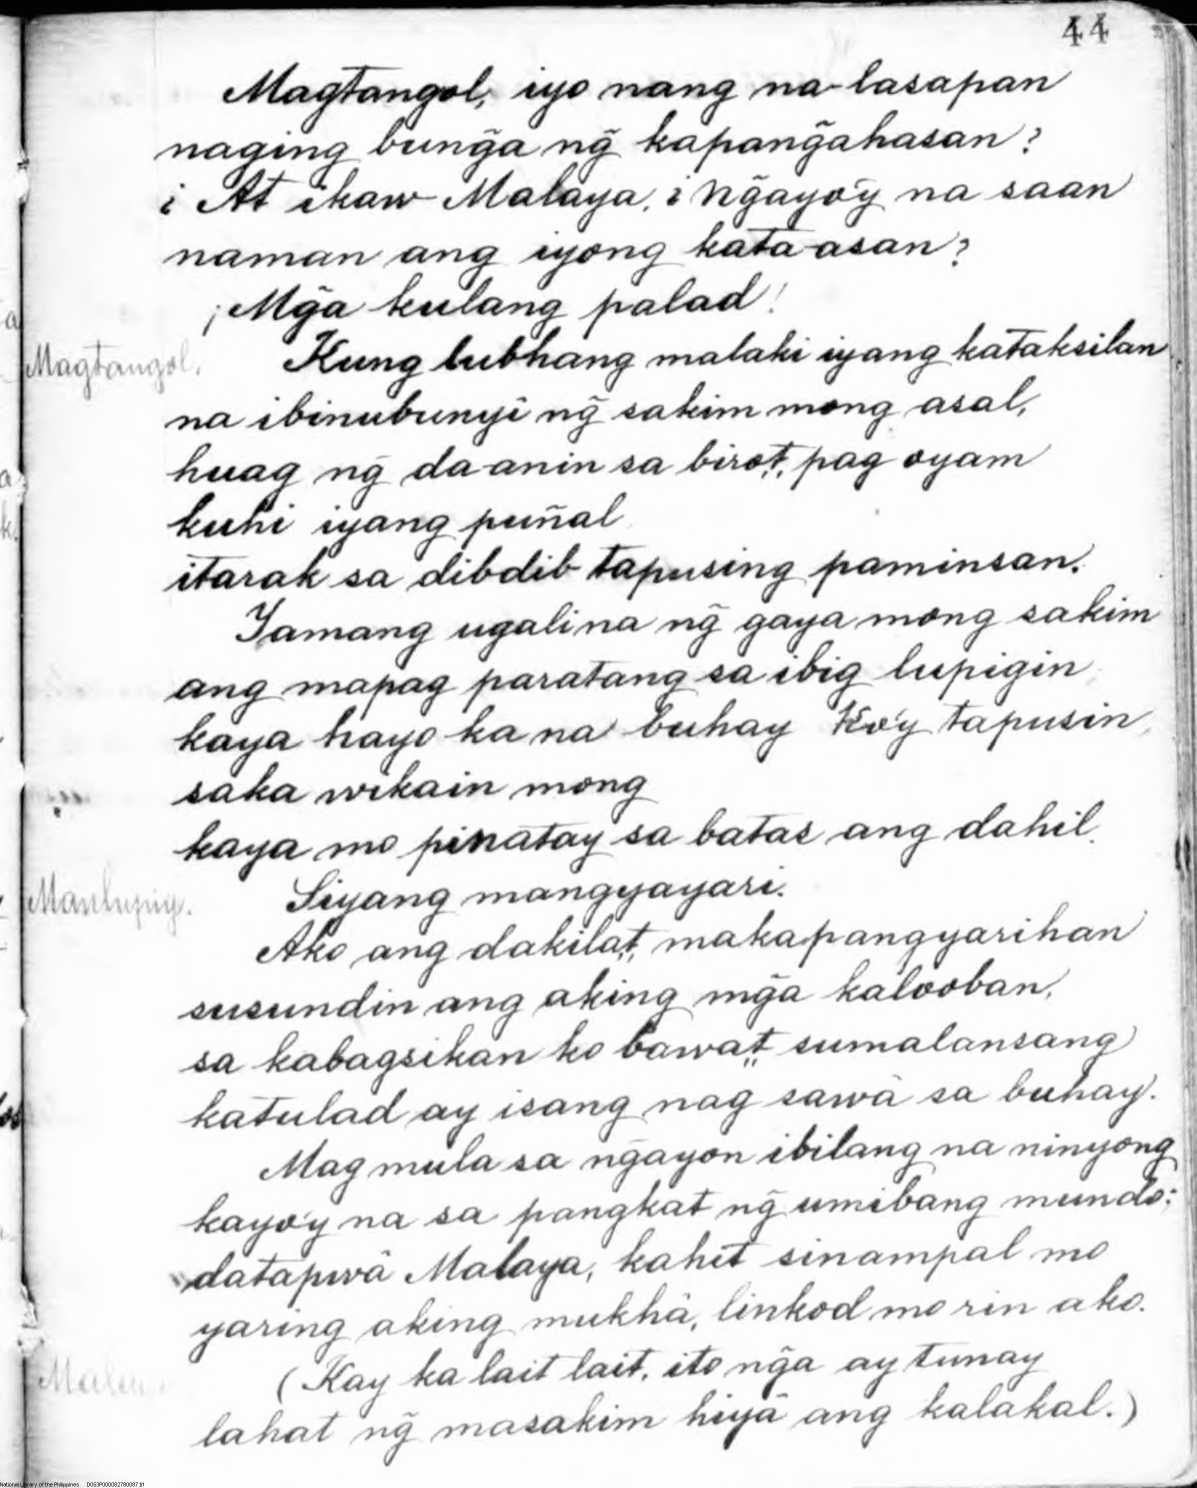 44
Magtangol, iyo nang na-lasapan
naging bung̃a ng̃ kapang̃ahasan?
¿At ikaw Malaya, ¿Ng̃ayo'y na saan
naman ang iyong kata-asan?
¡Mg̃a kulang palad!
Magtangol. Kung lubhang malaki iyang kataksilan
na ibinubunyi ng̃ sakim mong asal,
huag ng̃ da-anin sa birot, pag oyam
kuhi iyang puñal
itarak sa dibdib tapusing paminsan.
Yamang ugali na ng̃ gaya mong sakim
ang mapag paratang sa ibig lupigin
kaya hayo ka na buhay ko'y tapusin,
saka wikain mong
kaya mo pinatay sa batas ang dahil.
Manlupig. Siyang mangyayari.
Ako ang dakilat, makapangyarihan
susundin ang aking mg̃a kalooban,
sa kabagsikan ko bawa't sumalansang
katulad ay isang nag sawâ sa buhay.
Mag mula sa ng̃ayon ibilang na ninyong
kayo'y na sa pangkat ng̃ umibang mundo;
datapwâ Malaya, kahit sinampal mo
yaring aking mukhâ, linkod mo rin ako.
(Kay ka lait lait, ito ng̃a ay tunay
lahat ng̃ masakim hiyâ ang kalakal.)
National Library of the Philippines